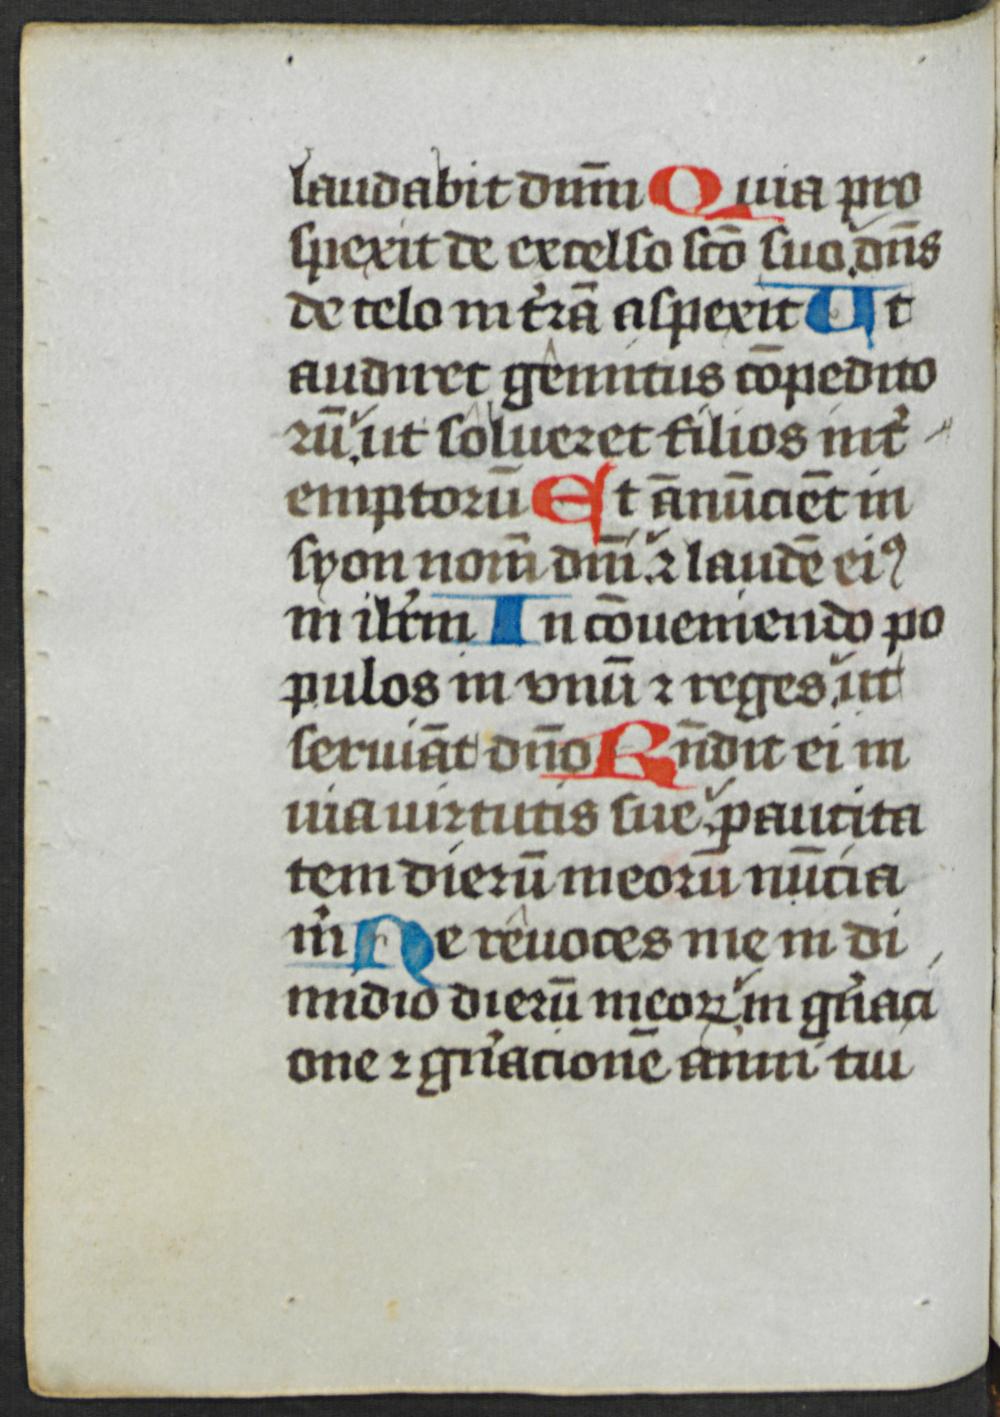 laudabit dnm̄ Quia pro
spexit de excelso sc̄o suo. dn̄s
de celo in t̓rā aspexit Ut
audiret gemitus cōpedito
rū. ut solueret filios int̓
emptorū Et ānūciēt in
syon nom̄ dnī. ⁊ laudē eiꝰ
in ilr̄m In cōueniendo po
pulos in vnū ⁊ reges. ut
seruiāt dn̄o Rn̄dit ei in
uia uirtutis sue. paucita
tem dierū meorū nūcia
m̓i Ne reuoces me in di
midio dierū meoꝝ. in gn̓aci
one ⁊ gn̓acionē anni tui